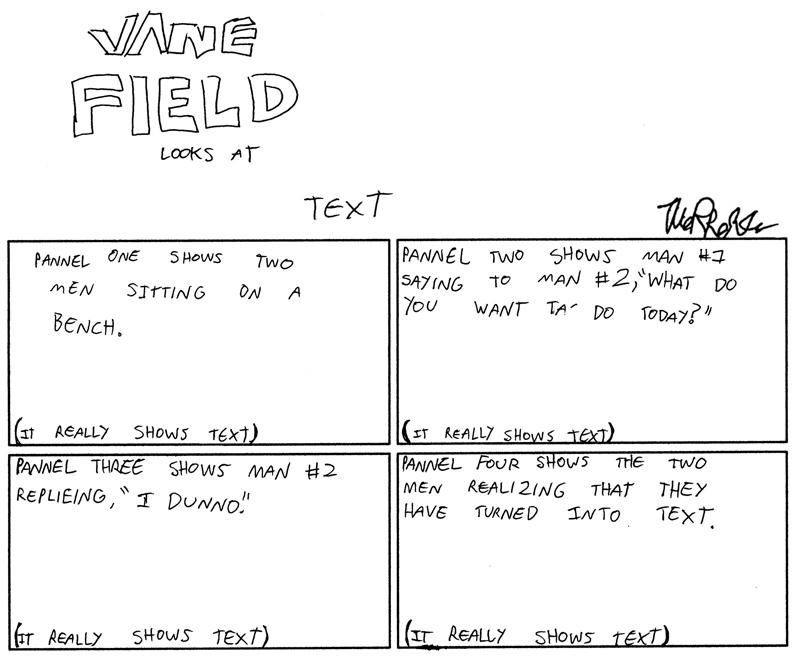 VANE
FIELD
LOOKS AT
TEXT
PANNEL ONE SHOWS TWO
MEN SITTING ON A
BENCH.
(IT REALLY SHOWS TEXT)
PANNEL TWO SHOWS MAN #1
SAYING TO MAN #2, "WHAT DO
YOU WANT TA' DO TODAY?"
(IT REALLY SHOWS TEXT)
PANNEL THREE SHOWS MAN #2
REPLIEING, "I DUNNO."
(IT REALLY SHOWS TEXT)
PANNEL FOUR SHOWS THE TWO
MEN REALIZING THAT THEY
HAVE TURNED INTO TEXT.
(IT REALLY SHOWS TEXT)